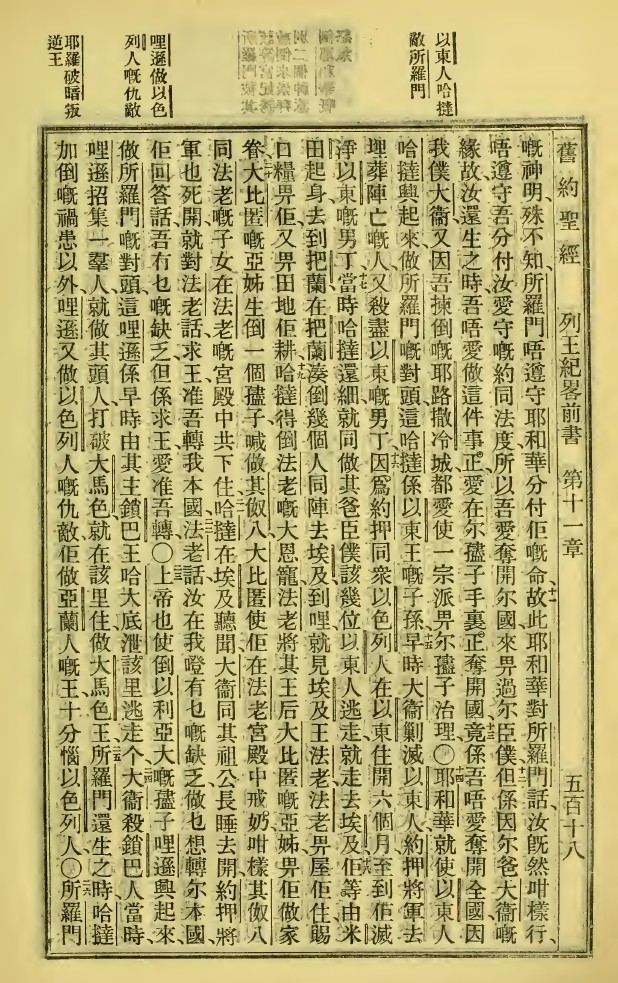 以東人哈撻
敵所羅門
哩遜做以色
列人嘅仇敵
耶羅破暗叛
逆王
舊約聖經 列王紀畧前書 第十一章 五百十八
嘅神明、殊不知所羅門唔遵守耶和華分付佢嘅命、十一故此耶和華對所羅門話、汝既然咁樣行、
唔遵守吾分付汝愛守嘅約同法度、所以吾愛奪開尔國來畀過尔臣僕、十二但係因尔爸大衞嘅
緣故、汝還生之時、吾唔愛做這件事、正愛在尔孻子手裏正奪開國、十三竟係吾唔愛奪開全國、因
我僕大衞、又因吾揀倒嘅耶路撒冷城、都愛使一宗派畀尔孻子治理〇十四耶和華就使以東人
哈撻興起來做所羅門嘅對頭、這哈撻係以東王嘅子孫、十五早時大衞剿滅以東人、約押將軍去
埋葬陣亡嘅人、又殺盡以東嘅男丁、十六因爲約押同衆以色列人在以東住開六個月、至到佢滅
淨以東嘅男丁、十七當時哈撻還細、就同做其爸臣僕該幾位以東人逃走、就走去埃及、十八佢等由米
田起身、去到把蘭、在把蘭湊倒幾個人同陣去埃及、到哩就見埃及王法老、法老畀屋佢住、賜
口糧畀佢、又畀田地佢耕、十九哈撻得倒法老嘅大恩寵、法老將其王后大比匿嘅亞姊畀佢做家
眷、二十大比匿嘅亞姊生倒一個孻子、喊做其倣八、大比匿使佢在法老宮殿中戒奶、咁樣其倣八
同法老嘅子女在法老嘅宮殿中共下住、二一哈撻在埃及聽聞大衞同其祖公長睡去開、約押將
軍也死開、就對法老話、求王准吾轉我本國、二二法老話、汝在我嗱有乜嘅缺乏、做乜想轉尔本國、
佢回答話、吾有乜嘅缺乏、但係求王愛准吾轉〇二三上帝也使倒以利亞大嘅孻子哩遜興起來
做所羅門嘅對頭、這哩遜係早時由其主鎖巴王哈大底泄該里逃走个、二四大衞殺鎖巴人當時、
哩遜招集一羣人、就做其頭人、打破大馬色、就在該里住、做大馬色王、二五所羅門還生之時、哈撻
加倒嘅禍患以外、哩遜又做以色列人嘅仇敵、佢做亞蘭人嘅王、十分惱以色列人〇二六所羅門